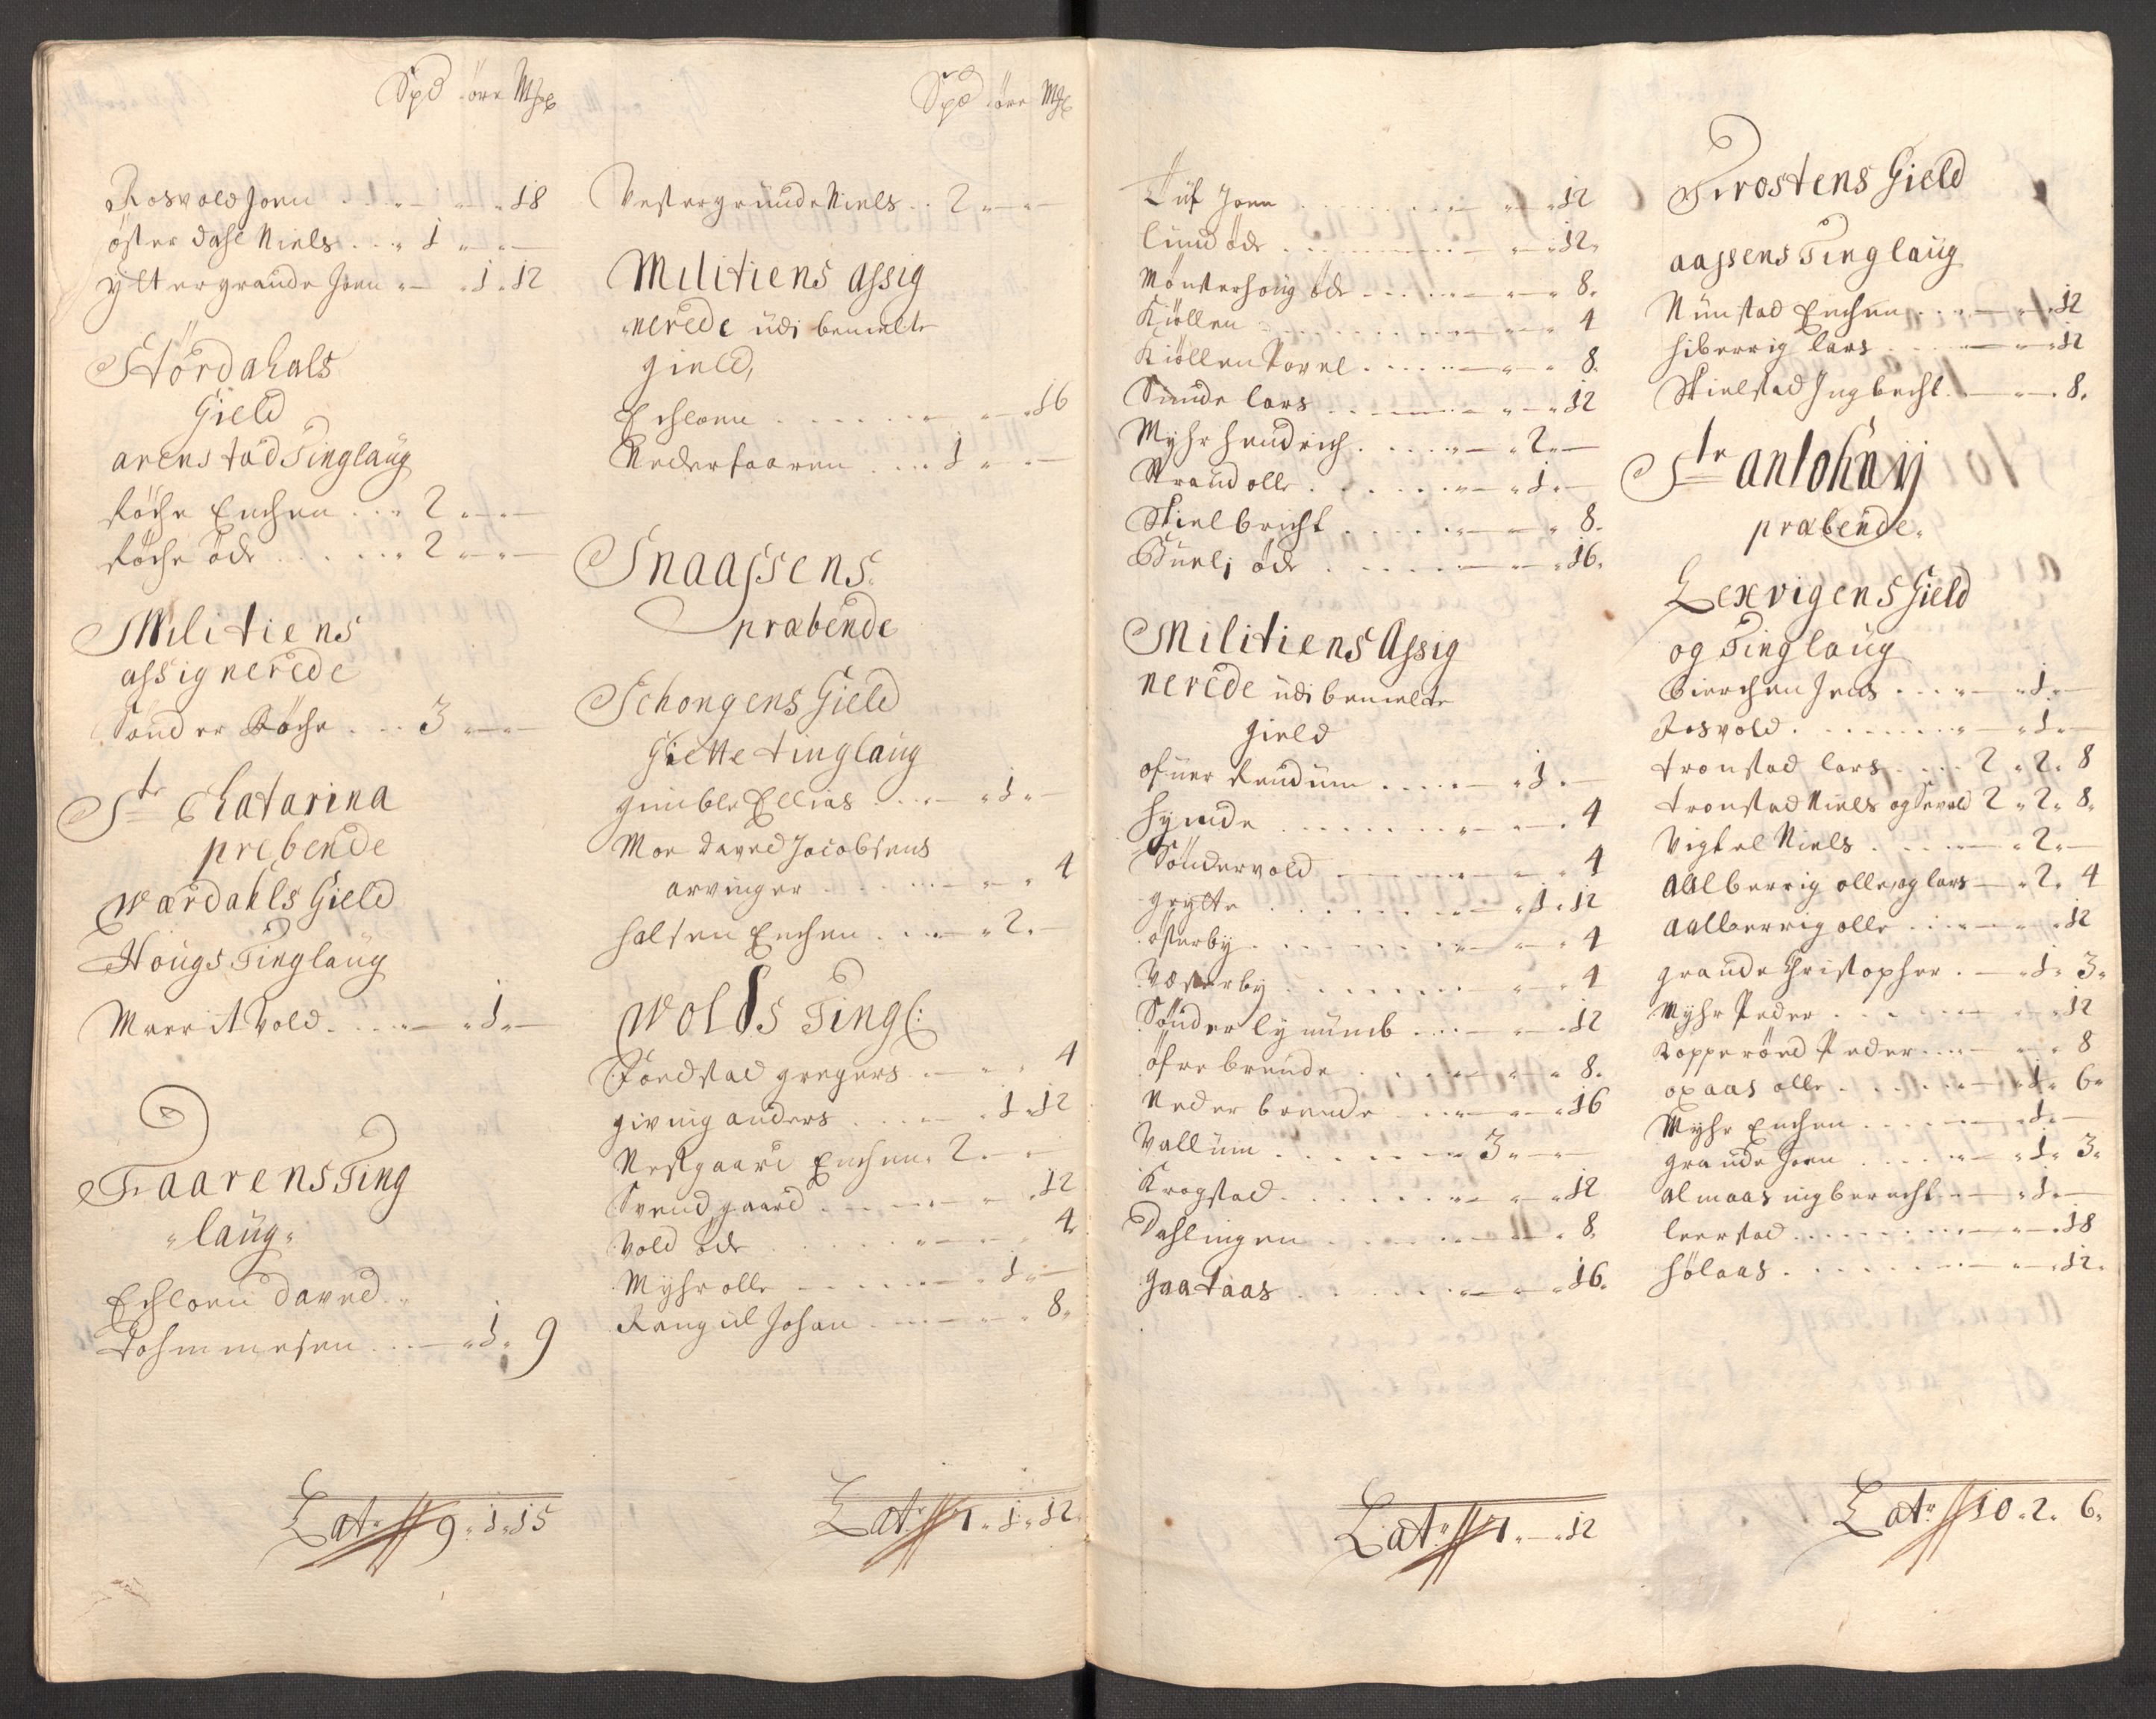 Spd öre Mrk
Rosvold Joen . . . . 18
öster dahl Niels . . . 1
ytter grande Joen . 1. 12
Stördahals
Gield
arenstad Tinglaug
Röche Enchen . . . 2
Röche öde . . . . . 2
Militiens
assignerede
Sönder Röche . . . 3
Ste Chatarina
prebende
Wærdahls Gield
Hougs Tinglaug
Marrit Vold . . . . 1
Faarens Ting
laug
Echloen David
Tohmmesen . . . 1. 9
Lat. 9. 1. 15
Spd öre Mrk
Vestergrunde Niels . . 2
Militiens assig
nerede udi bemelte
gield,
Echloen . . . . . . 16
Nederfaaren . . . . 1
Snaassens
præbende
Schongens Gield
Giette tinglaug
gimble Ellias . . . . 1
Moe David Jacobsens
arvinger . . . . . 4
halsen Enchen . . . . 2
Wolds Tingl:
Foedstad gregers . . . 4
giving anders . . . . 1. 12
Nestgaard Enchen . 2
Svend gaard . . . . 12
Vold öde . . . . . 4
Myhr olle . . . . . 1
Rengul Johan . . . . 8
Lat. 7. 1. 12
Tuf Joen . . . . . . 12
lund öde . . . . . . 12
Mönsterhoug öde . . . . 8
Kiöllen . . . . . . . 4
Kiöllen Povel . . . . . 8
Sunde lars . . . . . . 12
Myhr hendrich . . . . . 2
Strand olle . . . . . 1
Skiel bricht . . . . . . 8
Buuli öde . . . . . . 16
Militiens Assig
nerede udi bemelte
gield
ofuer Rendum . . . . . 1
hymde . . . . . . . 4
Söndervold . . . . . . 4
grytte . . . . . . . 1. 12
österby . . . . . . . 4
Vesterby . . . . . . 4
Sönder lynumb . . . . 12
öfre brende . . . . . 8
Neder brende . . . . . 16
Vallum . . . . . . 3
Krogstad . . . . . . 12
Dahlingen . . . . . . 8
Gaataas . . . . . . 16
Lat. 7. 12
Frostens Gield
aassens Tinglaug
Nunstad Enchen . . . . 12
hiberrig lars . . . . . 12
Skielstad Ingbrecht . . 8
Ste antohnij
præbende
Lexvigens Gield
og Tinglaug
Bierchen Jens . . . . 1
Rosvold . . . . . . . 1
tronstad lars . . . . 2. 2. 8
tronstad Niels og Sevald 2. 2. 8
Vigtel Niels . . . . . 2
aalberrig olle, og lars 2. 4
aalberrig olle . . . . . 12
grande Christopher . 1. 3
Myhr Peder . . . . . 12
Kopperöed Peder . . . . 8
oxaas olle . . . . . 1. 6
Myhr Enchen . . . . . 1
grande Joen . . . . . 1. 3
almaas ingberecht . . . 1
leerstad . . . . . . . 18
hölaas . . . . . . . 12
Lat. 10. 2. 6